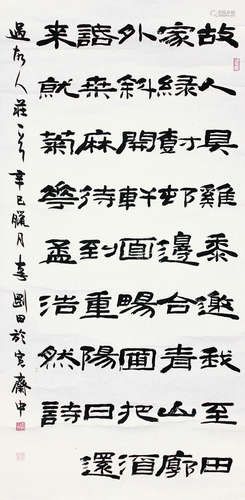 故人具雞黍邀我至田
家綠樹邨邊合青山廓
外斜開軒面場圃把酒
話桒麻待到重陽日還
来就菊華孟浩然詩
過故人莊一首 辛巳臘月 李剛田於寬齋中